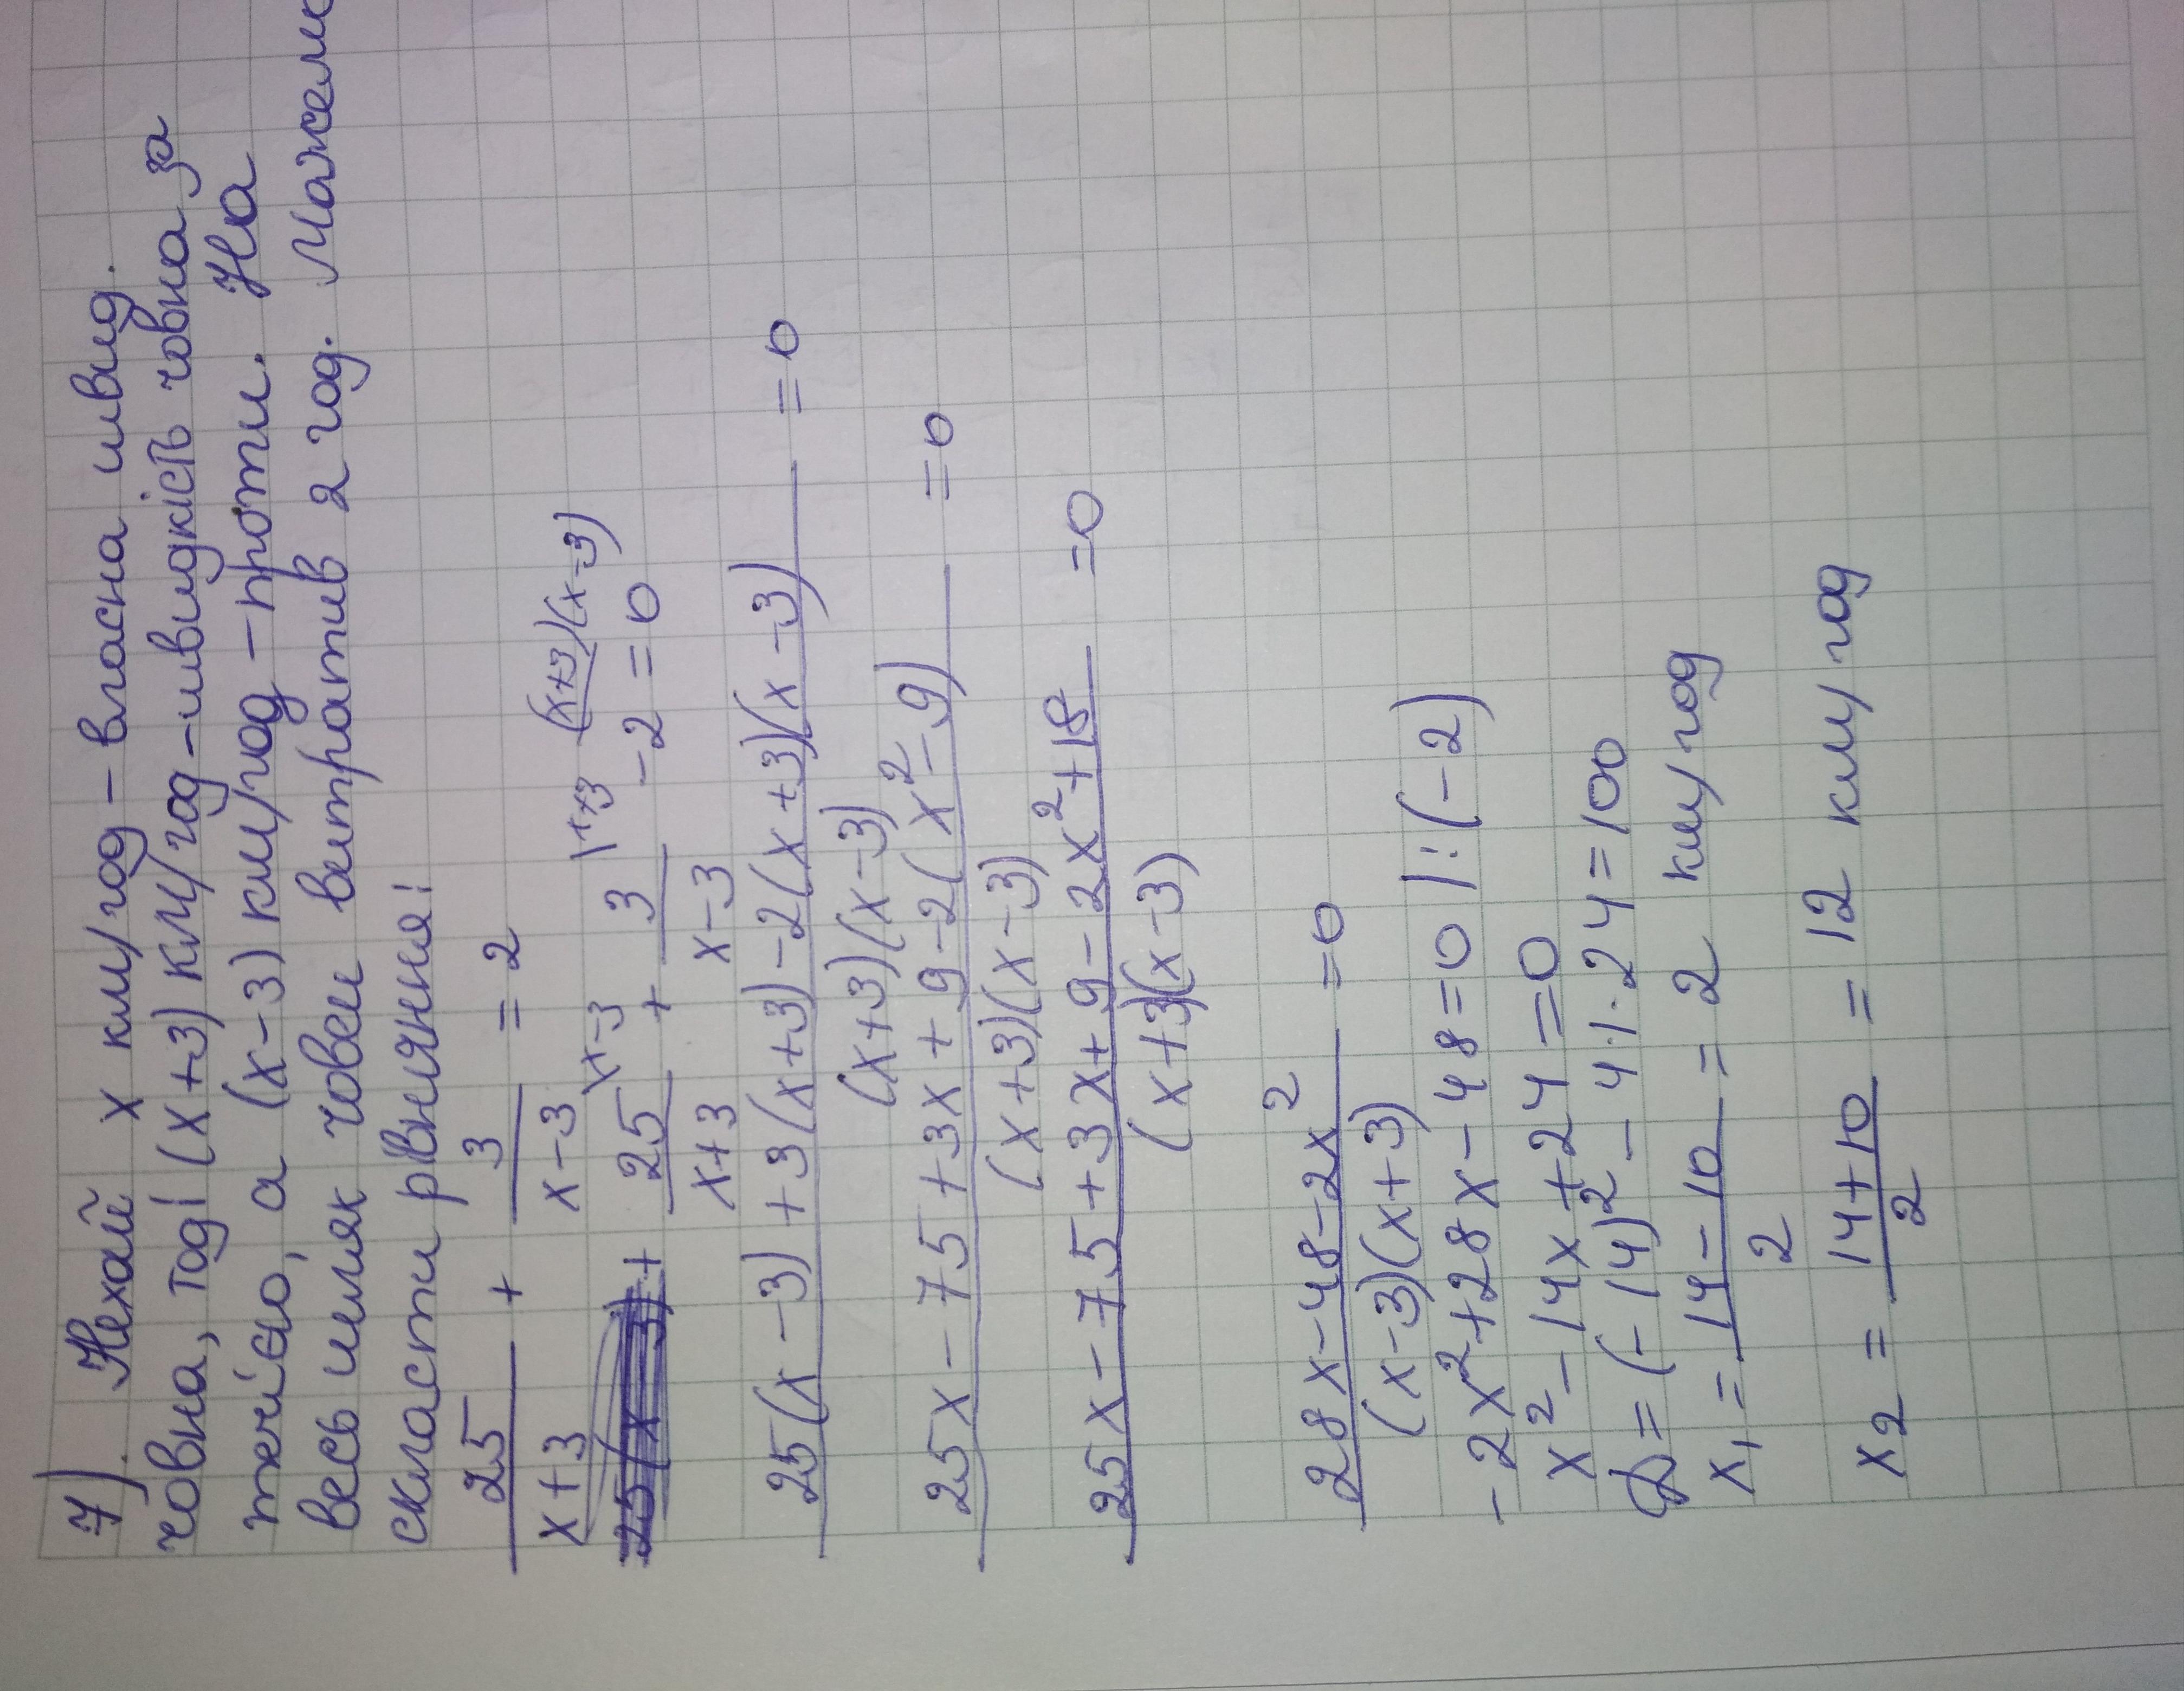 7). Нехай x км/год – власна швид.
човна, тоді (x+3) км/год – швидкість човна за
течією, а (x-3) км/год – проти. На
весь шлях човен витратив 2 год. Можемо
скласти рівняння:
25/(x+3) + 3/(x-3) = 2
25/(x+3) \x-3 + 3/(x-3) \x+3 - 2 \(x+3)(x-3) = 0
(25(x-3)+3(x+3)-2(x+3)(x-3))/((x+3)(x-3)) = 0
(25x-75+3x+9-2(x²-9))/((x+3)(x-3)) = 0
(25x-75+3x+9-2x²+18)/((x+3)(x-3)) = 0
(28x-48-2x²)/((x-3)(x+3)) = 0
-2x²+28x-48=0 |:(-2)
x²-14x+24=0
D=(-14)²-4·1·24=100
x₁ = (14-10)/2 = 2 км/год
x₂ = (14+10)/2 = 12 км/год